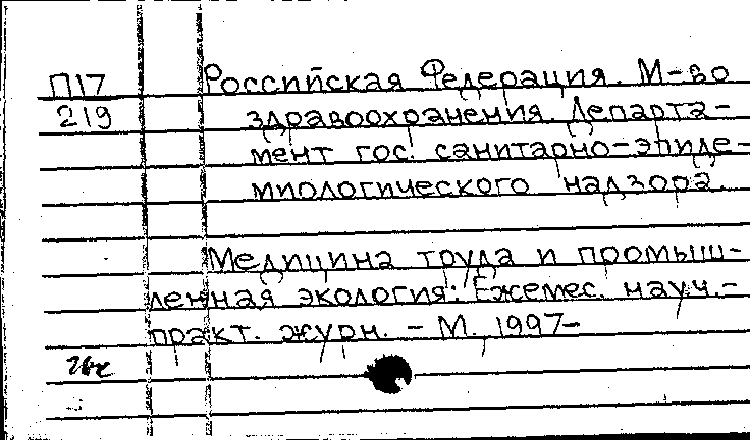 П17 Российская Федерация. М-во
219 здравоохранения. Департа-
мент гос. санитарно-эпиде-
миологического надзора.
Медицина труда и промыш-
ленная экология: Ежемес. науч.-
практ. журн. – М., 1997–